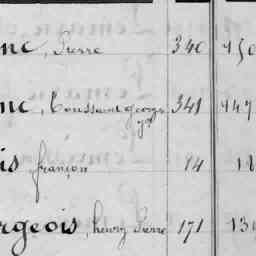 nc, Pierre 340 150
nc, Toussaint george 341 147
is françois 14 18
rgeois, henry Pierre 171 131